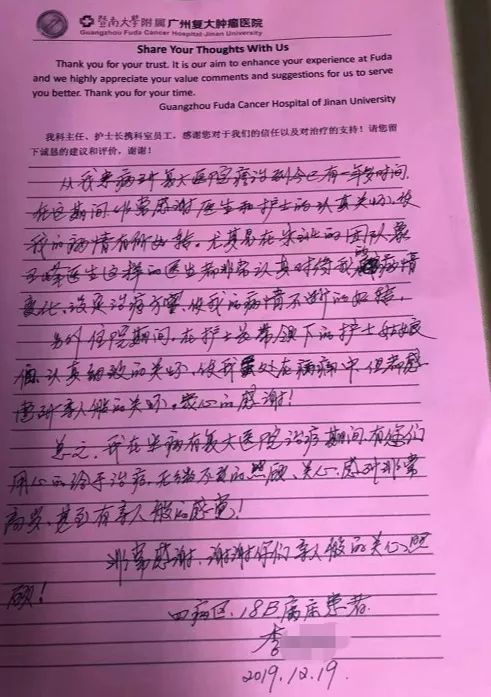 暨南大學附属广州复大肿瘤医院
Guangzhou Fuda Cancer Hospital·Jinan University
Share Your Thoughts With Us
Thank you for your trust. It is our aim to enhance your experience at Fuda
and we highly appreciate your value comments and suggestions for us to serve
you better. Thank you for your time.
Guangzhou Fuda Cancer Hospital of Jinan University
我科主任、护士长携科室员工，感谢您对于我们的信任以及对治疗的支持！请您留
下诚恳的建议和评价，谢谢！
从我患病到复大医院治疗到今已有一年多时间.
在这期间，非常感谢医生和护士的认真关怀，使
我的病情有所好转。尤其是在朱的团队象
医生这样的医生都非常认真对待我的病情
变化，改变治疗方案，使我的病情不断的好转，
另外住院期间，在护士长带领下的护士姑娘
们认真细致的关怀，使我处在病痛中，但都感
受到亲人般的关怀。衷心的感谢！
总之，我在患病在复大医院治疗期间有你们
用心的给予治疗，无微不至的照顾、关心、感到非常
高兴，甚至有亲人般的感觉！
非常感谢，谢谢你们亲人般的关心照
顾！
四病区，18B病床患者
李
2019.12.19